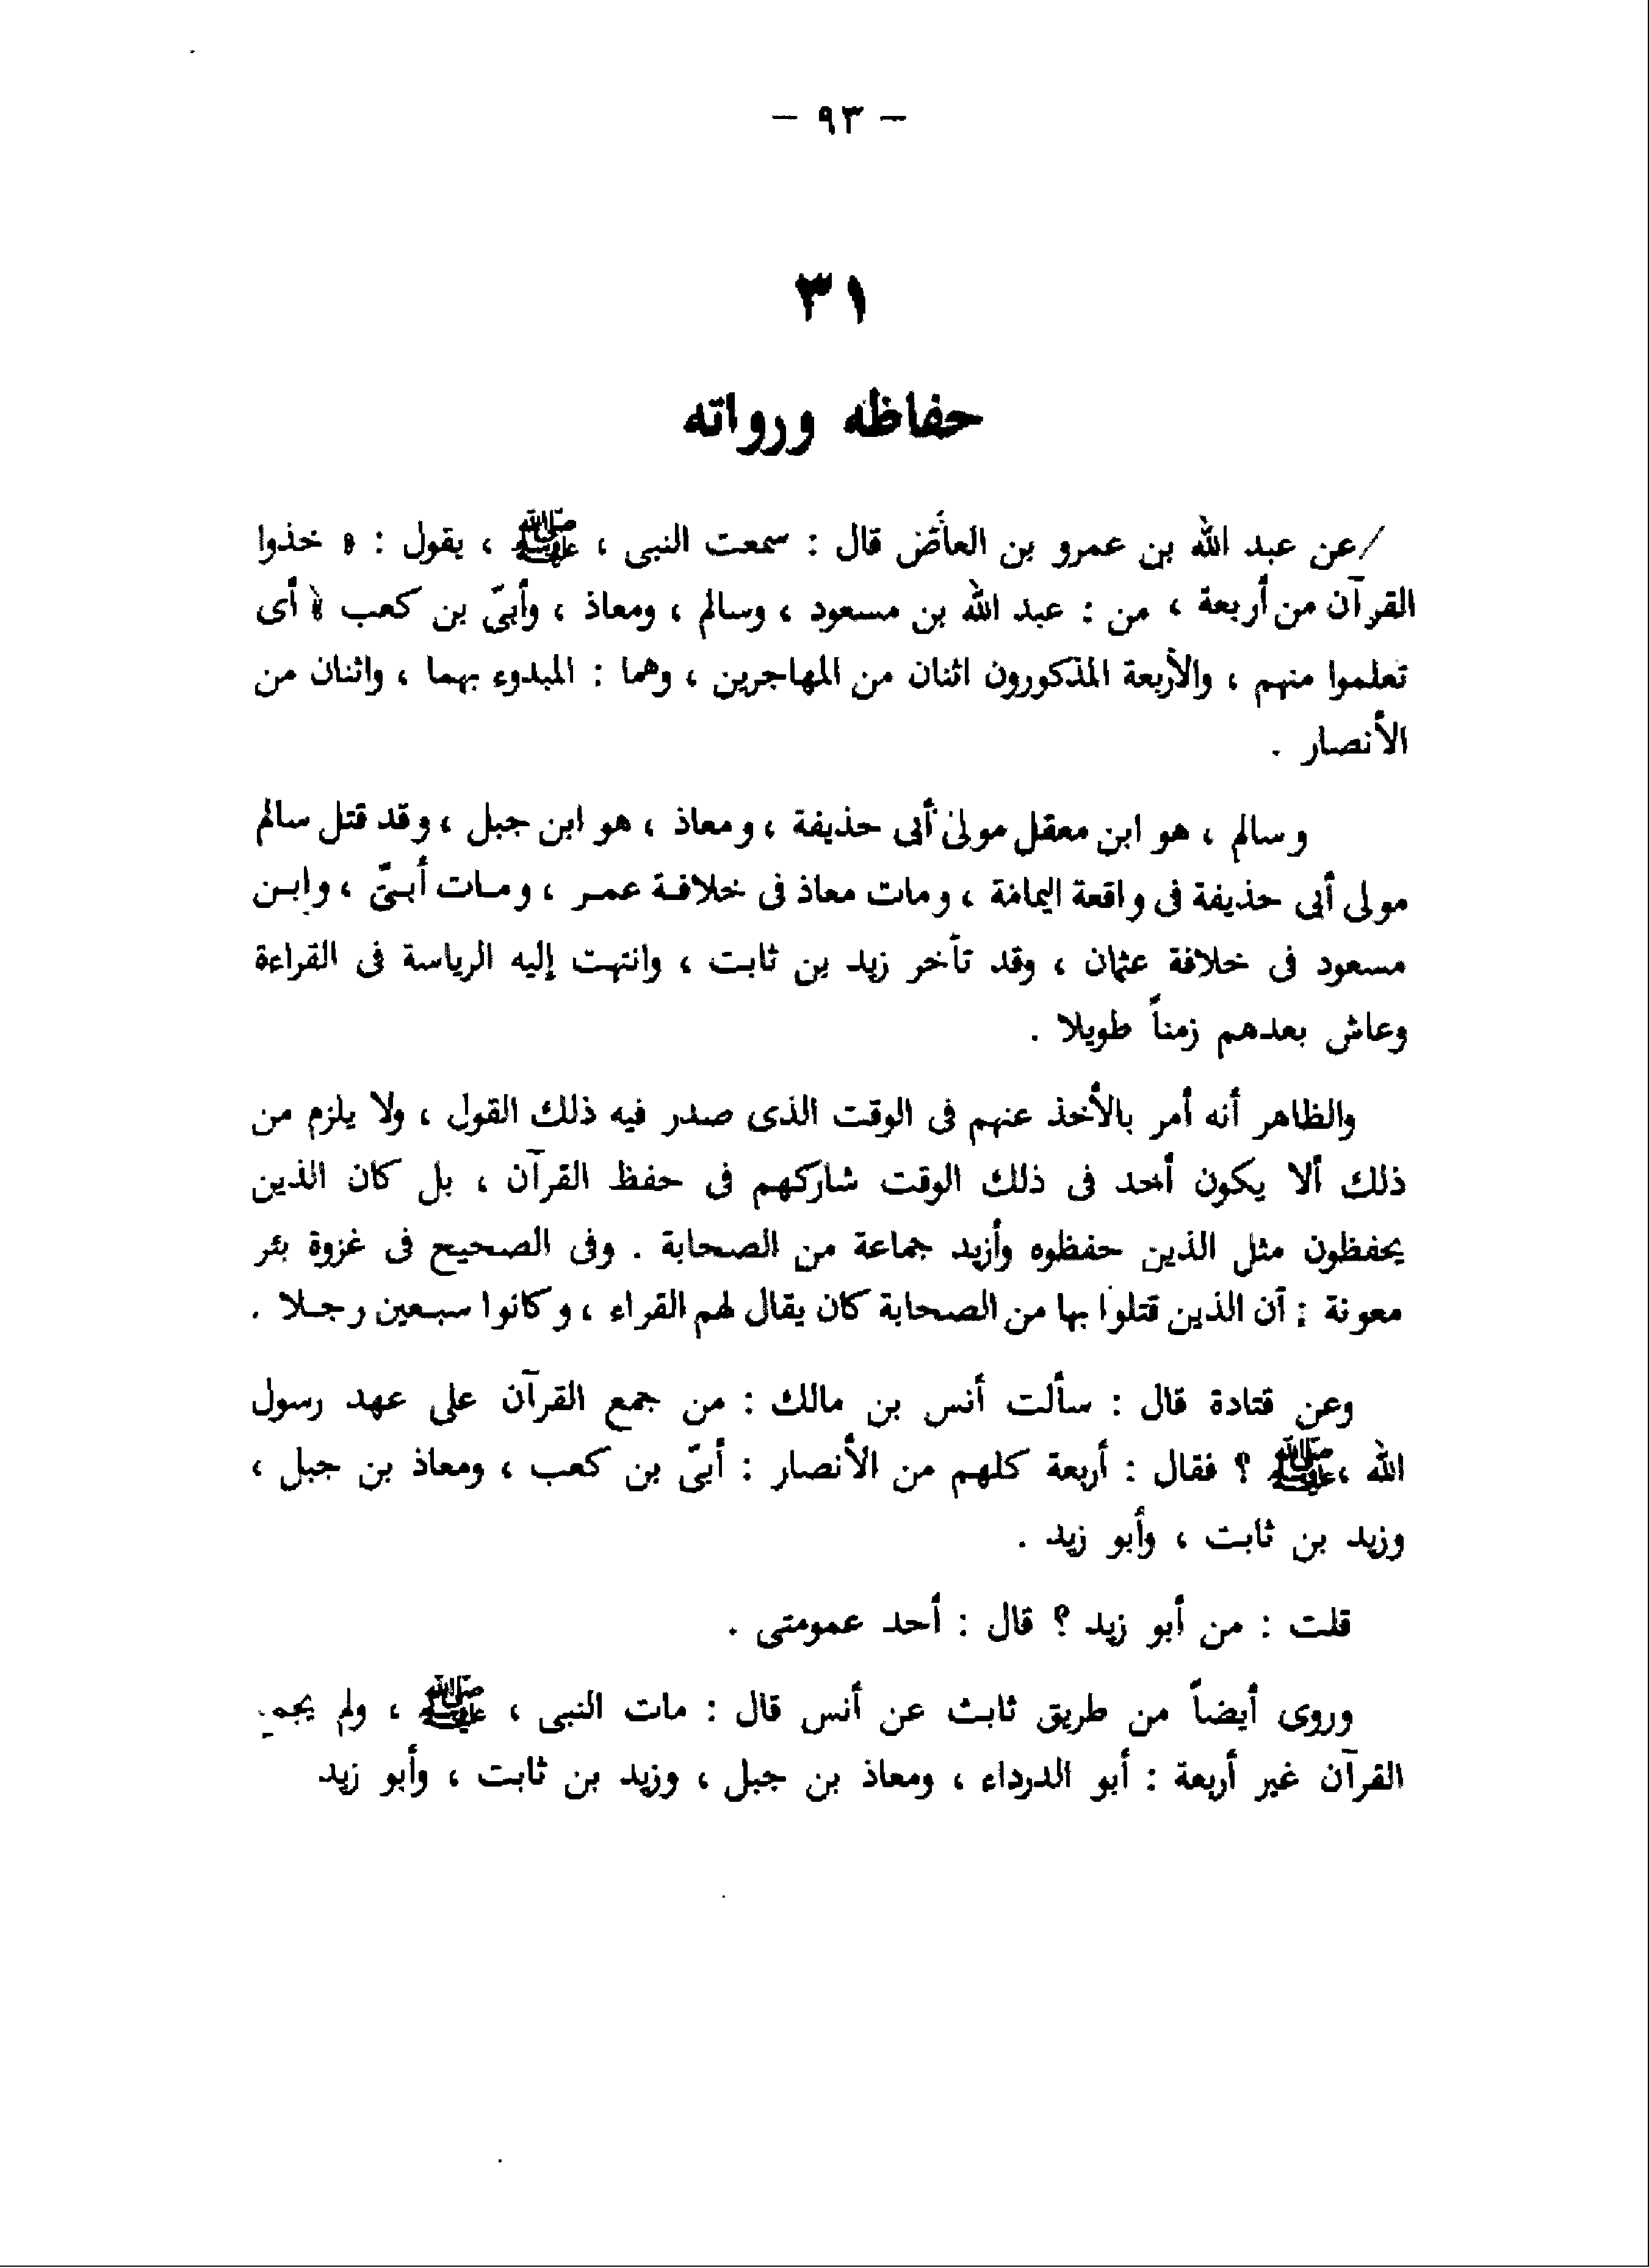 – ٩٣ –
٣١
حفاظه ورواته
عن عبد الله بن عمرو بن العاص قال : سمعت النبى ، ﷺ ، يقول : « خذوا
القرآن من أربعة ، من : عبد الله بن مسعود ، وسالم ، ومعاذ ، وأبىّ بن كعب » أى
تعلموا منهم ، والأربعة المذكورون اثنان من المهاجرين ، وهما : المبدوء بهما ، واثنان من
الأنصار .
وسالم ، هو ابن معقل مولى أبى حذيفة ، ومعاذ ، هو ابن جبل ، وقد قتل سالم
مولى أبى حذيفة فى واقعة اليمامة ، ومات معاذ فى خلافة عمر ، ومات أبىّ ، وابن
مسعود فى خلافة عثمان ، وقد تأخر زيد بن ثابت ، وانتهت إليه الرياسة فى القراءة
وعاش بعدهم زمناً طويلا .
والظاهر أنه أمر بالأخذ عنهم فى الوقت الذى صدر فيه ذلك القول ، ولا يلزم من
ذلك ألا يكون أحد فى ذلك الوقت شاركهم فى حفظ القرآن ، بل كان الذين
يحفظون مثل الذين حفظوه وأزيد جماعة من الصحابة . وفى الصحيح فى غزوة بئر
معونة : أن الذين قتلوا بها من الصحابة كان يقال لهم القراء ، وكانوا سبعين رجلا .
وعن قتادة قال : سألت أنس بن مالك : من جمع القرآن على عهد رسول
الله ، ﷺ ؟ فقال : أربعة كلهم من الأنصار : أبىّ بن كعب ، ومعاذ بن جبل ،
وزيد بن ثابت ، وأبو زيد .
قلت : من أبو زيد ؟ قال : أحد عمومتى .
وروى أيضاً من طريق ثابت عن أنس قال : مات النبى ، ﷺ ، ولم
القرآن غير أربعة : أبو الدرداء ، ومعاذ بن جبل ، وزيد بن ثابت ، وأبو زيد